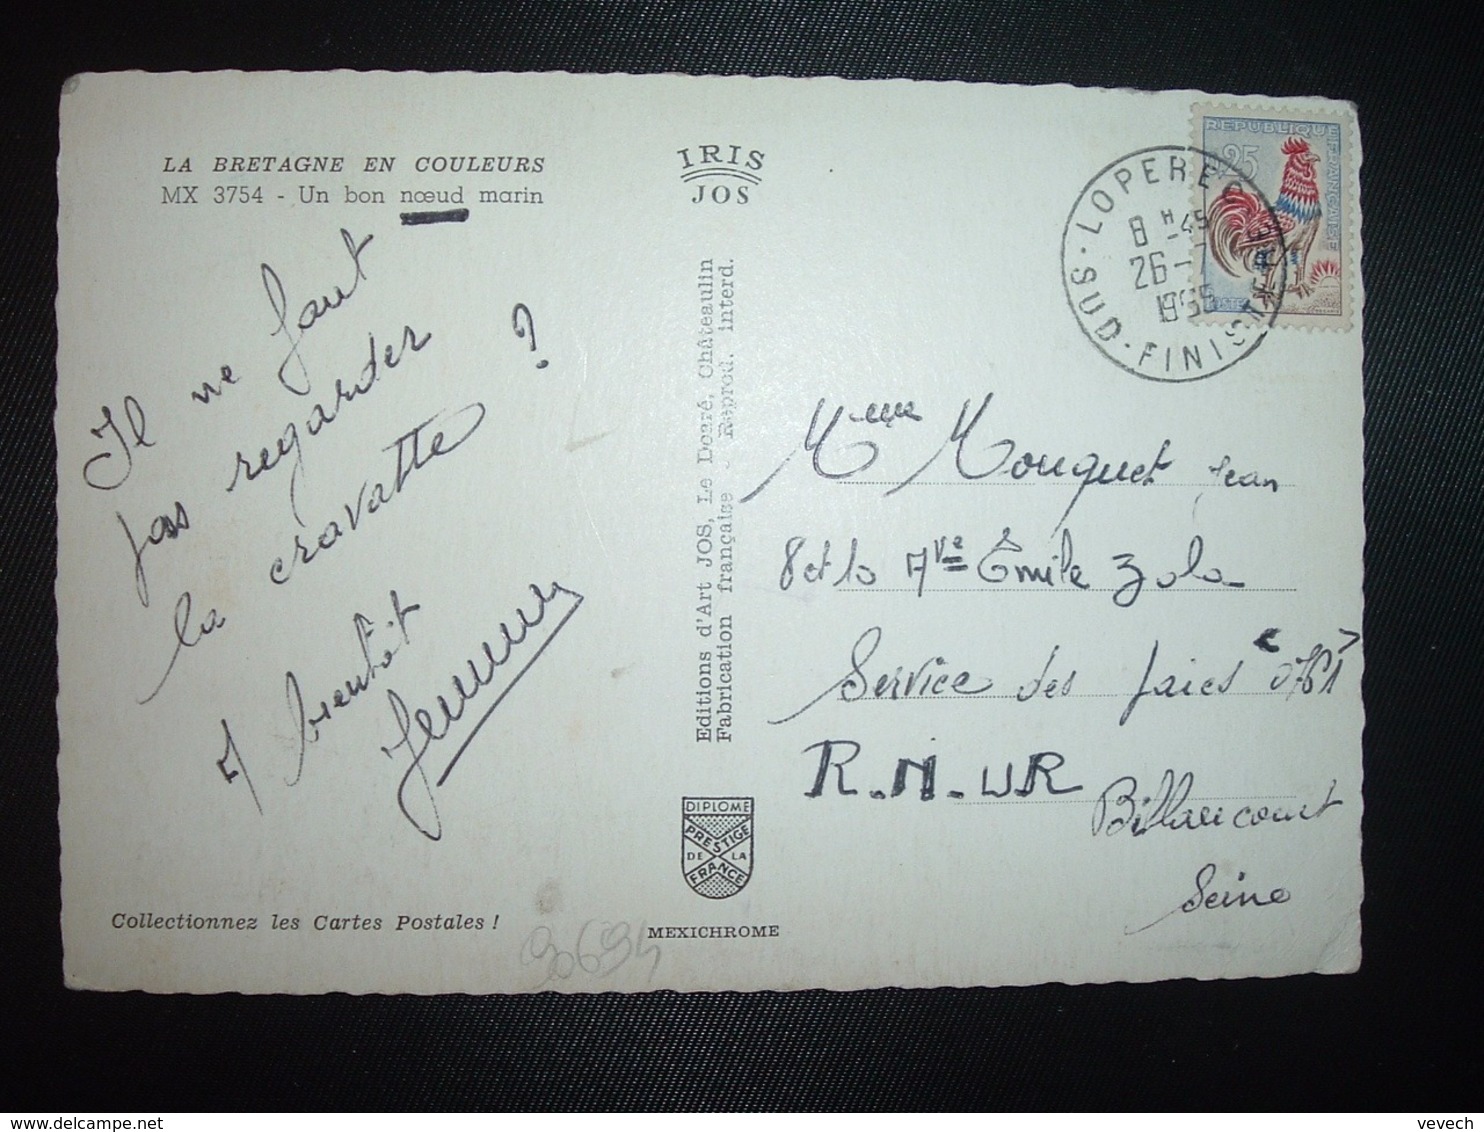 LA BRETAGNE EN COULEURS
MX 3754 - Un bon nœud marin
IRIS
JOS
Il ne faut
pas regarder
la cravatte ?
A bientôt
Editions d'Art JOS, Le Doaré, Châteaulin
Fabrication française - Reprod. interd.
DIPLOME
PRESTIGE
DE LA
FRANCE
MEXICHROME
Collectionnez les Cartes Postales !
90694
REPUBLIQUE FRANÇAISE
0,25
POSTES
LOPEREC
8 H -45
26 - 7
1965
SUD-FINISTERE
Mme Mouquet Jean
8 et 10 Ave Émile Zola
Service des paies "0761"
R.N.U.R
Billancourt
Seine
delcampe.net
vevech